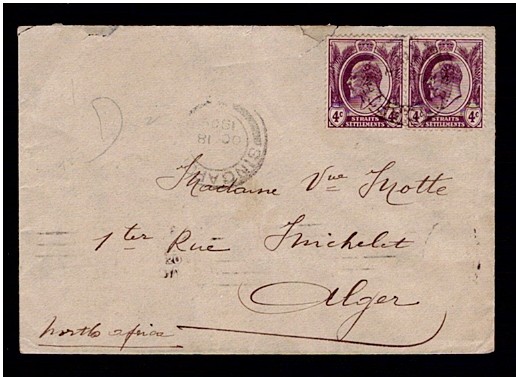 4c 4c
STRAITS SETTLEMENTS STRAITS SETTLEMENTS
SINGAP
OC 18
Madame Vve Motte
1 ter Rue Michelet
Alger
North Africa